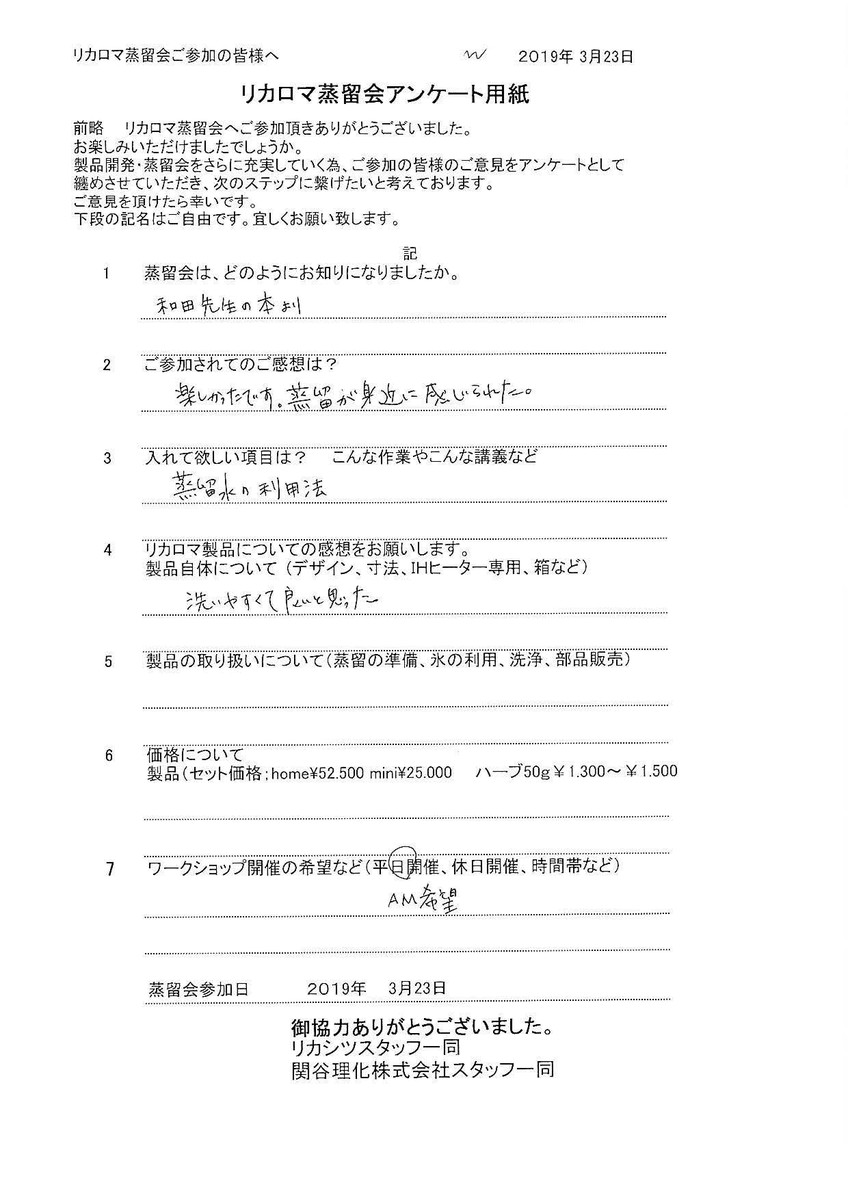 リカロマ蒸留会ご参加の皆様へ 2019年 3月23日
リカロマ蒸留会アンケート用紙
前略 リカロマ蒸留会へご参加頂きありがとうございました。
お楽しみいただけましたでしょうか。
製品開発・蒸留会をさらに充実していく為、ご参加の皆様のご意見をアンケートとして
纏めさせていただき、次のステップに繋げたいと考えております。
ご意見を頂けたら幸いです。
下段の記名はご自由です。宜しくお願い致します。
記
1 蒸留会は、どのようにお知りになりましたか。
和田先生の本より
2 ご参加されてのご感想は？
楽しかったです。蒸留が身近に感じられた。
3 入れて欲しい項目は？ こんな作業やこんな講義など
蒸留水の利用法
4 リカロマ製品についての感想をお願いします。
製品自体について（デザイン、寸法、IHヒーター専用、箱など）
洗いやすくて良いと思った
5 製品の取り扱いについて（蒸留の準備、氷の利用、洗浄、部品販売）
6 価格について
製品（セット価格；home¥52.500 mini¥25.000 ハーブ50g￥1.300～￥1.500
7 ワークショップ開催の希望など（平日開催、休日開催、時間帯など）
AM希望
蒸留会参加日 2019年 3月23日
御協力ありがとうございました。
リカシツスタッフ一同
関谷理化株式会社スタッフ一同